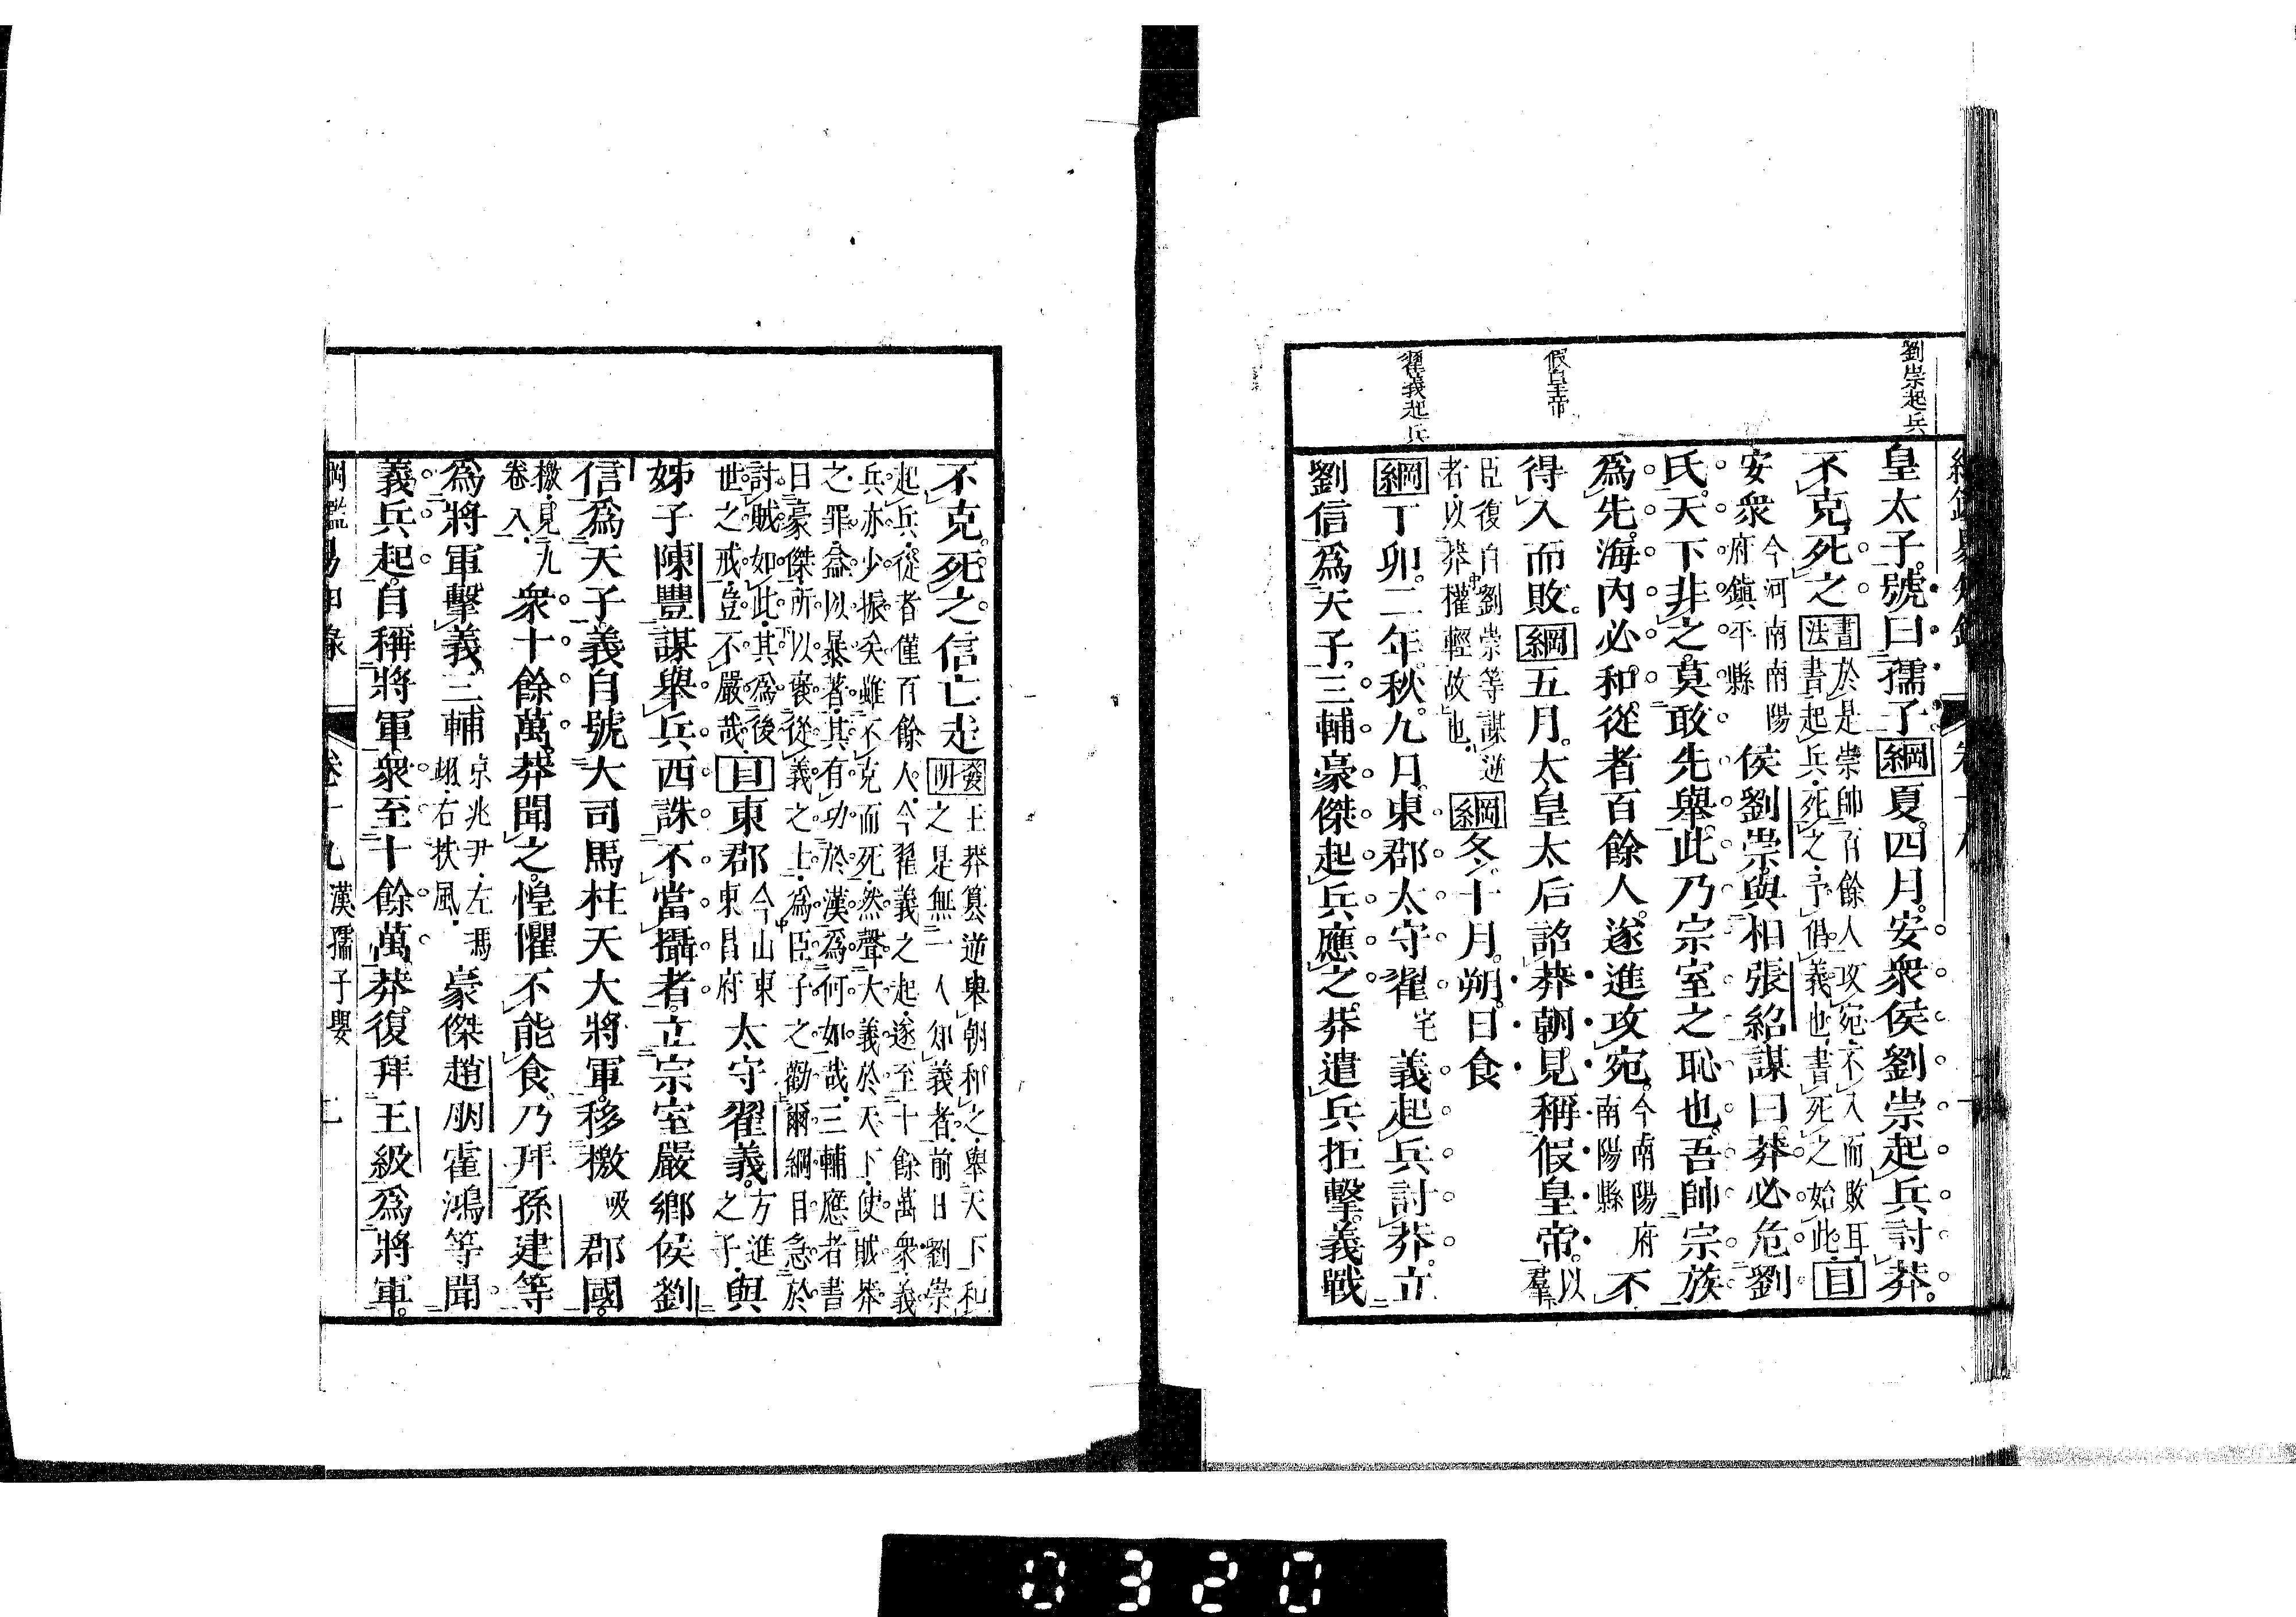 劉崇起兵
假皇帝
翟義起兵
皇太子號曰孺子綱夏四月安衆侯劉崇起兵討莽
不克死之書法於是崇帥百餘人攻宛不入而敗耳書起兵死之予倡義也書死之始此目
安衆今河南南陽府鎮平縣侯劉崇與相張紹謀曰莽必危劉
氏天下非之莫敢先舉此乃宗室之恥也吾帥宗族
爲先海内必和從者百餘人遂進攻宛今南陽府南陽縣不
得入而敗綱五月太皇太后詔莽朝見稱假皇帝以羣
臣復白劉崇等謀逆者以莽權輕故也綱冬十月朔日食
綱丁卯二年秋九月東郡太守翟宅義起兵討莽立
劉信爲天子三輔豪傑起兵應之莽遣兵拒擊義戰
不克死之信亡走發明王莽簒逆舉朝和之舉天下和之是無一人知義者前日劉崇
起兵從者僅百餘人今翟義之起遂至十餘萬衆義
兵亦少振矣雖不克而死然聲大義於天下使賊莽
之罪益以暴著其有功於漢爲何如哉三輔應者書
曰豪傑所以褒從義之士爲臣子之勸爾綱目急於
討賊如此其爲後世之戒豈不嚴哉目東郡今山東東昌府太守翟義方進之子與
姊子陳豐謀舉兵西誅不當攝者立宗室嚴鄉侯劉
信爲天子義自號大司馬柱天大將軍移檄吸郡國
檄見九卷入衆十餘萬莽聞之惶懼不能食乃拜孫建等
爲將軍擊義三輔京兆尹左馮翊右扶風豪傑趙朋霍鴻等聞
義兵起自稱將軍衆至十餘萬莽復拜王級爲將軍
綱鑑易知錄 卷十九 漢孺子嬰 二
0320